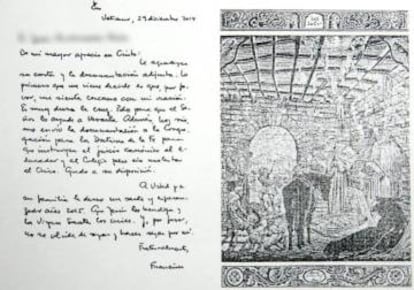 Vaticano, 29 diciembre 2014
De mi mayor aprecio en Cristo:
Le agradezco
su carta y la documentación adjunta. Lo
primero que me viene decirle es que, por fa-
vor, me sienta cercano con mi oración.
Es muy dura la cruz. Pido para que el Se-
ñor los ayude a llevarla. Además, hoy mis-
mo envío la documentación a la Congre-
gación para la Doctrina de la Fe para
que el juicio canónico al e-
ducador, y el Colegio
Quedo a su disposición.
A Usted y a
su familia le deseo un santo y
año 2015. Que Jesús los bendiga y
la Virgen Santa los cuide. Y, por favor,
no se olvide de rezar y hacer rezar por mí.
Fraternalmente,
Francisco